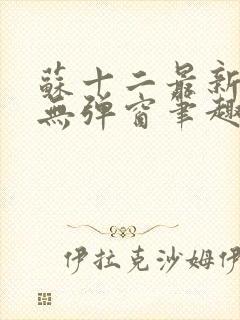 蘇十二最新
無弹窗筆趣
伊拉克沙姆伊